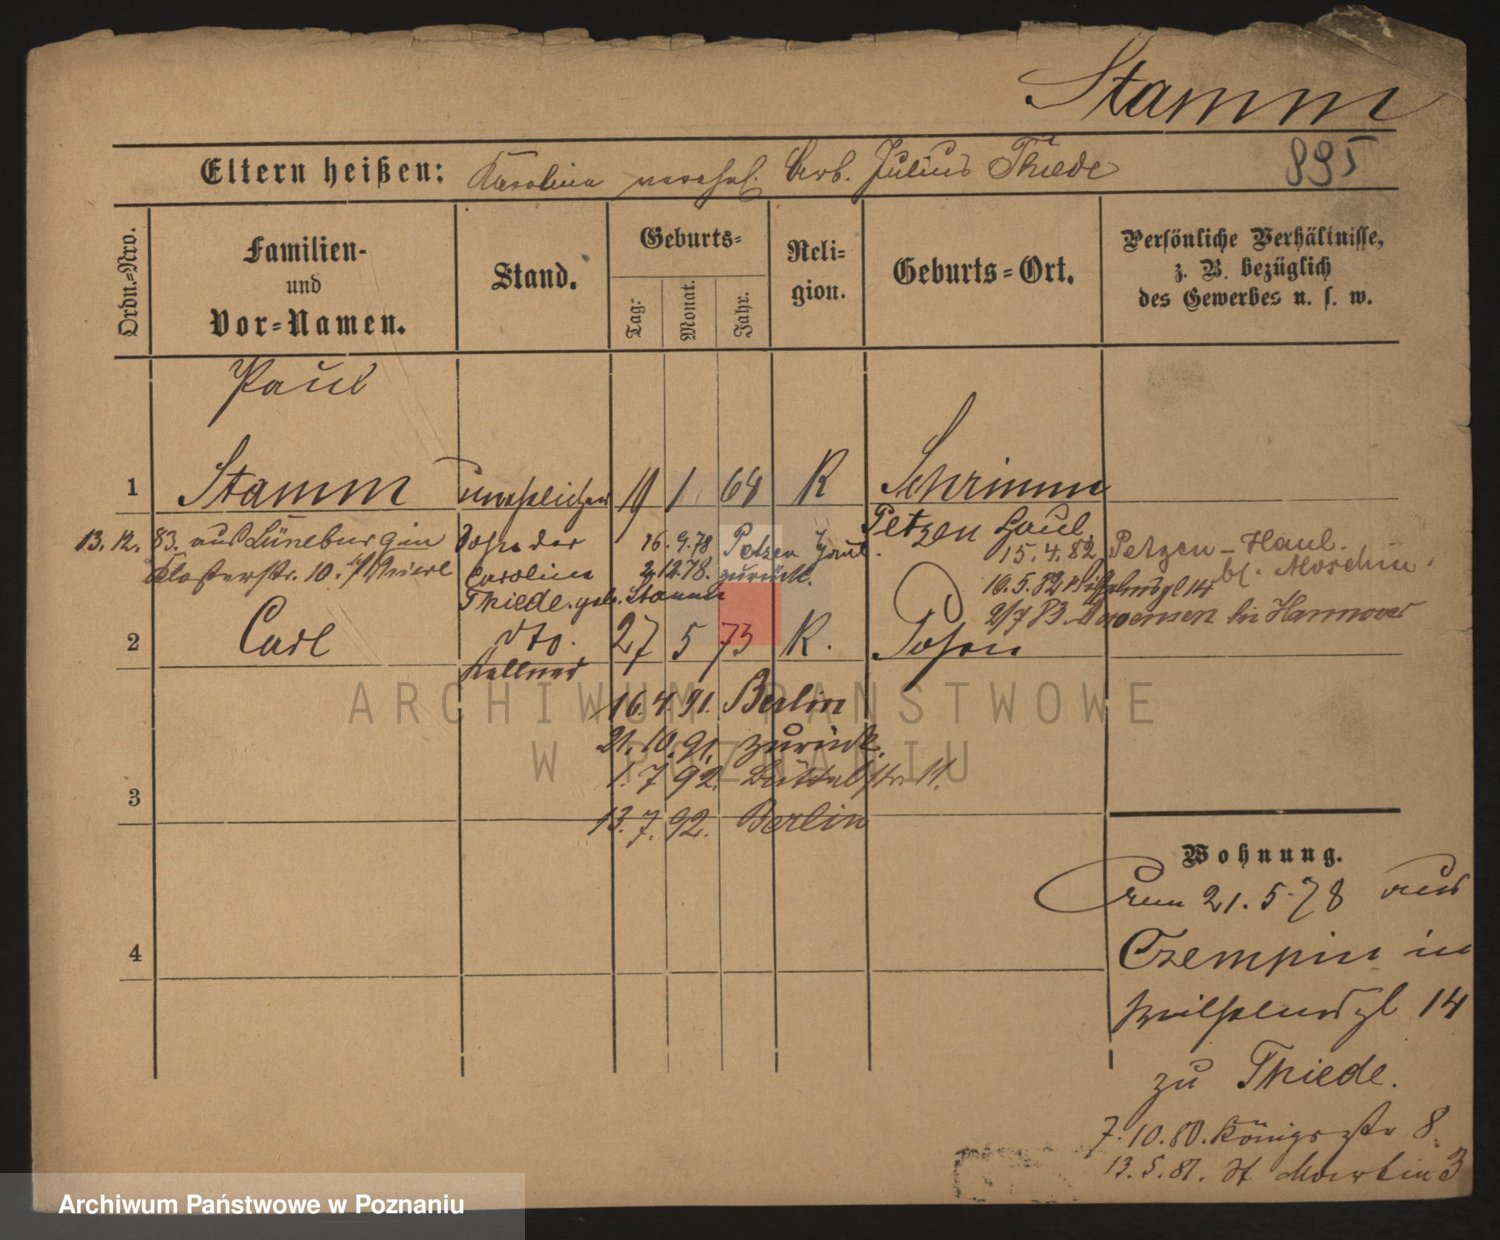 Stamm
895
Eltern heißen: Karolina verehel. Julius Thiede
Ordn.=Nro.
Familien-
und
Vor=Namen.
Stand.
Geburts=
Tag:
Monat.
Jahr.
Reli=
gion.
Geburts=Ort.
Persönliche Verhältnisse,
z. B. bezüglich
des Gewerbes u. s. w.
Paul
1 Stamm unehelicher 1 64 K Schrimm
Sohn der
Carolina
Thiede geb. Stamm
13.12.83. aus Lüneburg in
Klosterstr. 10.
16.9.78 Petzen Haul.
2.12.78. zurück.
Petzen Haul.
15.4.82 Petzen-Haul.
bf. Moschin.
16.5.82 Wilhelmspl 14
2/7 83. bei Hannover
2 Carl dto. 27 5 73 K. Posen
Kellner
16.4.91. Berlin
21.10.91. zurück.
1.7.92. 11.
13.7.92. Berlin
3
4
Wohnung.
21.5.78 aus
Czempin in
Wilhelmspl 14
zu Thiede.
7.10.80. Königsstr 8
13.5.81. St Martin 3
ARCHIWUM PAŃSTWOWE
W POZNANIU
Archiwum Państwowe w Poznaniu